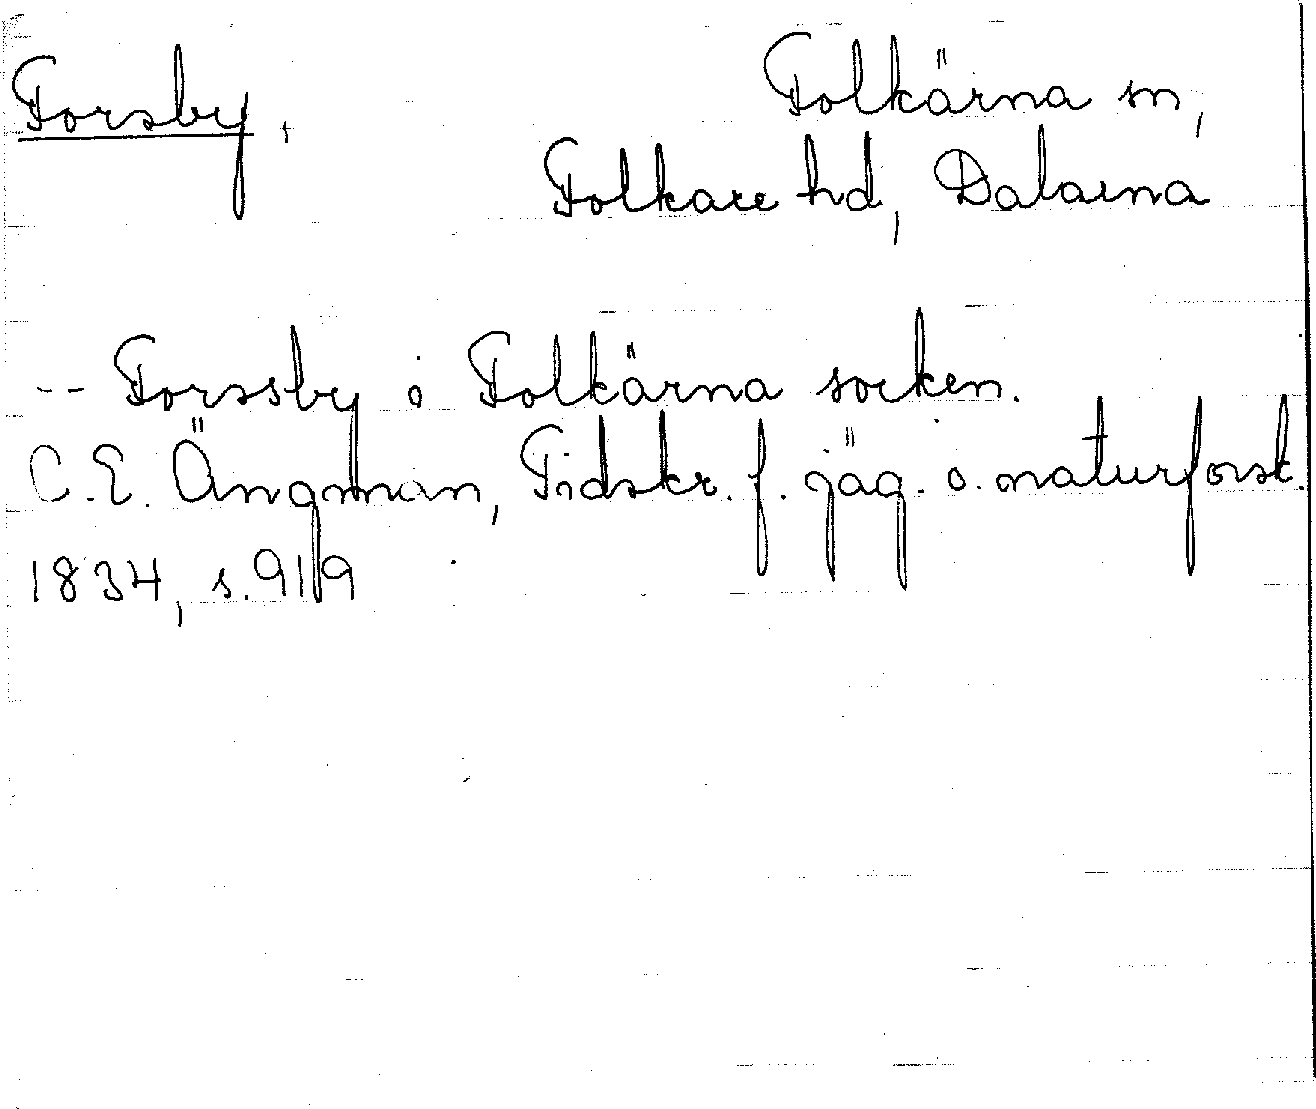 Forsby, Folkärna sn,
Folkare hd, Dalarna
-- Forssby i Folkärna socken.
C. E. Ängman, Tidskr. f. jäg. o. naturforsk.
1834, s. 919